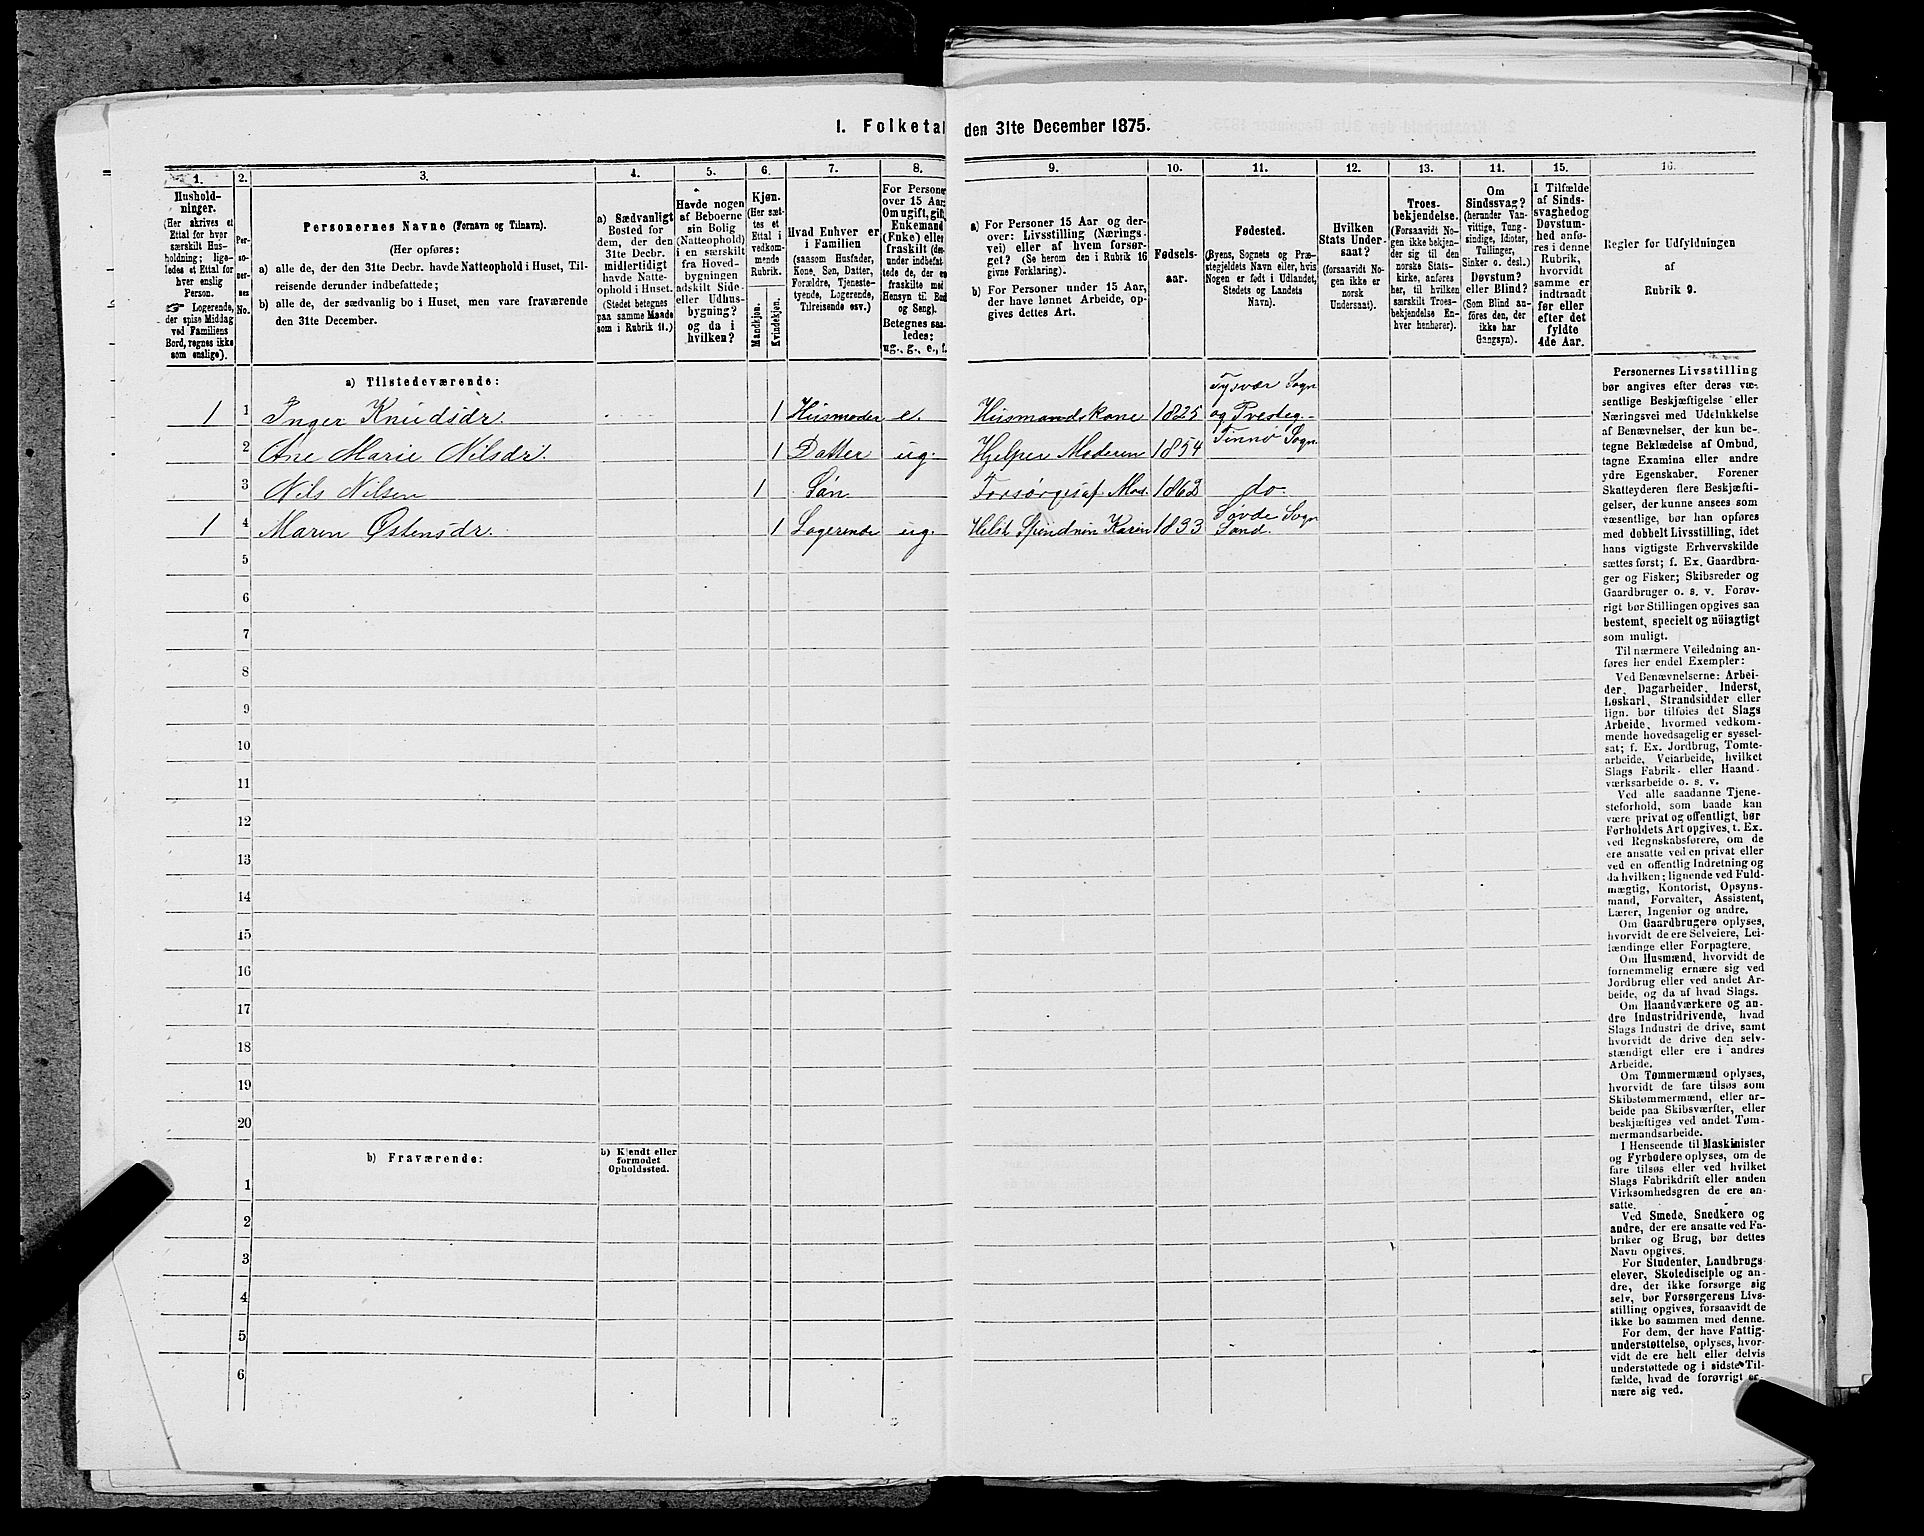 1. Folketal den 31te December 1875.
1.
Hushold-
ninger.
(Her skrives et
Ettal for hver
særskilt Hus-
holdning; lige-
ledes et Ettal for
hver enslig
Person.
☞ Logerende,
der spise Middag
ved Familiens
Bord, regnes ikke
som enslige).
2.
Per-
so-
ner-
nes
No.
3.
Personernes Navne (Fornavn og Tilnavn).
(Her opføres:
a) alle de, der den 31te Decbr. havde Natteophold i Huset, Til-
reisende derunder indbefattede;
b) alle de, der sædvanlig bo i Huset, men vare fraværende
den 31te December.
4.
a) Sædvanligt
Bosted for
dem, der den
31te Decbr.
midlertidigt
havde Natte-
ophold i Huset.
(Stedet betegnes
paa samme Maade
som i Rubrik 11.)
5.
Havde nogen
af Beboerne
sin Bolig
(Natteophold)
i en særskilt
fra Hoved-
bygningen
adskilt Side-
eller Udhus-
bygning?
og da i
hvilken?
6.
Kjøn.
(Her sæt-
tes et
Ettal i
vedkom-
mende
Rubrik.
Mandkjøn.
Kvindekjøn.
7.
Hvad Enhver er
i Familien
(saasom Husfader,
Kone, Søn, Datter,
Forældre, Tjeneste-
tyende, Logerende,
Tilreisende osv.)
8.
For Persone
over 15 Aar:
Om ugift, gift,
Enkemand
(Enke) eller
fraskilt (der-
under indbefat-
tede de, der e
fraskilte med
Hensyn til Bo
og Seng).
Betegnes saa-
ledes:
ug., g., e., f.
9.
a) For Personer 15 Aar og der-
over: Livsstilling (Nærings-
vei) eller af hvem forsør-
get? (Se herom den i Rubrik 16
givne Forklaring).
b) For Personer under 15 Aar,
der have lønnet Arbeide, op-
gives dettes Art.
10.
Fødsels-
aar.
11.
Fødested.
(Byens, Sognets og Præ-
stegjeldets Navn eller, hvis
Nogen er født i Udlandet,
Stedets og Landets
Navn).
12.
Hvilken
Stats Under-
saat?
(forsaavidt No-
gen ikke er
norsk
Undersaat).
13.
Troes-
bekjendelse.
(Forsaavidt No-
gen ikke bekjen-
der sig til den
norske Stats-
kirke, anføres
her, til hvilken
særskilt Troes-
bekjendelse En-
hver henhører).
11.
Om
Sindssvag?
(herunder Van-
vittige, Tung-
sindige, Idioter,
Tullinger,
Sinker o. desl.)
Døvstum?
eller Blind?
(Som Blind an-
føres den, der
ikke har
Gangsyn).
15.
I Tilfælde
af Sinds-
svaghed og
Døvstum-
hed anfø-
res i denne
Rubrik,
hvorvidt
samme er
indtraadt
før eller
efter det
fyldte
4de Aar.
16.
Regler for Udfyldningen
af
Rubrik 9.
a) Tilstedeværende:
1 1 Inger Knudsdr. 1 Husmoder e. Husmandskone 1825 Tysvær Sogn
og Presteg.
2 Ane Marie Nilsdr. 1 Datter ug. Hjelper Moderen 1854 Sogn.
3 Nils Nilsen 1 Søn Forsørges af Mod. 1862 do.
1 4 Maren Østensdr. 1 Logerende ug. Helst Spindning 1833 Søvde Sogn
Sand.
5
6
7
8
9
10
11
12
13
14
15
16
17
18
19
20
b) Fraværende:
b) Kjendt eller
formodet
Opholdssted.
1
2
3
4
5
6
Personernes Livsstilling
bør angives efter deres væ-
sentlige Beskjæftigelse eller
Næringsvei med Udelukkelse
af Benævnelser, der kun be-
tegne Beklædelse af Ombud,
tagne Examina eller andre
ydre Egenskaber. Forener
Skatteyderen flere Beskjæfti-
gelser, der kunne ansees som
væsentlige, bør han opføres
med dobbelt Livsstilling, idet
hans vigtigste Erhvervskilde
sættes først; f. Ex. Gaardbru-
ger og Fisker; Skibsreder og
Gaardbruger o. s. v. Forøv-
rigt bør Stillingen opgives saa
bestemt, specielt og nöiagtigt
som muligt.
Til nærmere Veiledning an-
føres her endel Exempler:
Ved Benævnelserne: Arbei-
der, Dagarbeider, Inderst,
Løskarl, Strandsidder eller
lign. bør tilføies det Slags
Arbeide, hvormed vedkom-
mende hovedsagelig er syssel-
sat; f. Ex. Jordbrug, Tomte-
arbeide, Veiarbeide, hvilket
Slags Fabrik- eller Haand-
værksarbeide o. s. v.
Ved alle saadanne Tjene-
steforhold, som baade kan
være privat og offentligt, bør
Forholdets Art opgives, t. Ex.
ved Regnskabsførere, om de
ere ansatte ved en privat eller
ved en offentlig Indretning og
da hvilken; lignende ved Fuld-
mægtig, Kontorist, Opsyns-
mand, Forvalter, Assistent,
Lærer, Ingeniør og andre.
Om Gaardbrugere oplyses,
hvorvidt de ere Selveiere, Lei-
lændinge eller Forpagtere.
Om Husmænd, hvorvidt de
fornemmelig ernære sig ved
Jordbrug eller ved andet Ar-
beide, og da af hvad Slags.
Om Haandværkere og an-
dre Industridrivende, hvad
Slags Industri de drive, samt
hvorvidt de drive den selv-
stændigt eller ere i andres
Arbeide.
Om Tømmermænd oplyses,
hvorvidt de fare tilsøs som
Skibstømmermænd, eller ar-
beide paa Skibsværfter, eller
beskjæftiges ved andet Tøm-
mermandsarbeide.
I Henseende til Maskinister
og Fyrbødere oplyses, om de
fare tilsøs eller ved hvilket
Slags Fabrikdrift eller anden
Virksomhedsgren de ere an-
satte.
Ved Smede, Snedkere og
andre, der ere ansatte ved Fa-
briker og Brug, bør dettes
Navn opgives.
For Studenter, Landbrugs-
elever, Skoledisciple og an-
dre, der ikke forsørge sig
selv, bør Forsørgerens Livs-
stilling opgives, forsaavidt de
ikke bo sammen med denne.
For dem, der have Fattig-
understøttelse, oplyses, hvor-
vidt de ere helt eller delvis
understøttede og i sidste Til-
fælde, hvad de forøvrigt er-
nære sig ved.